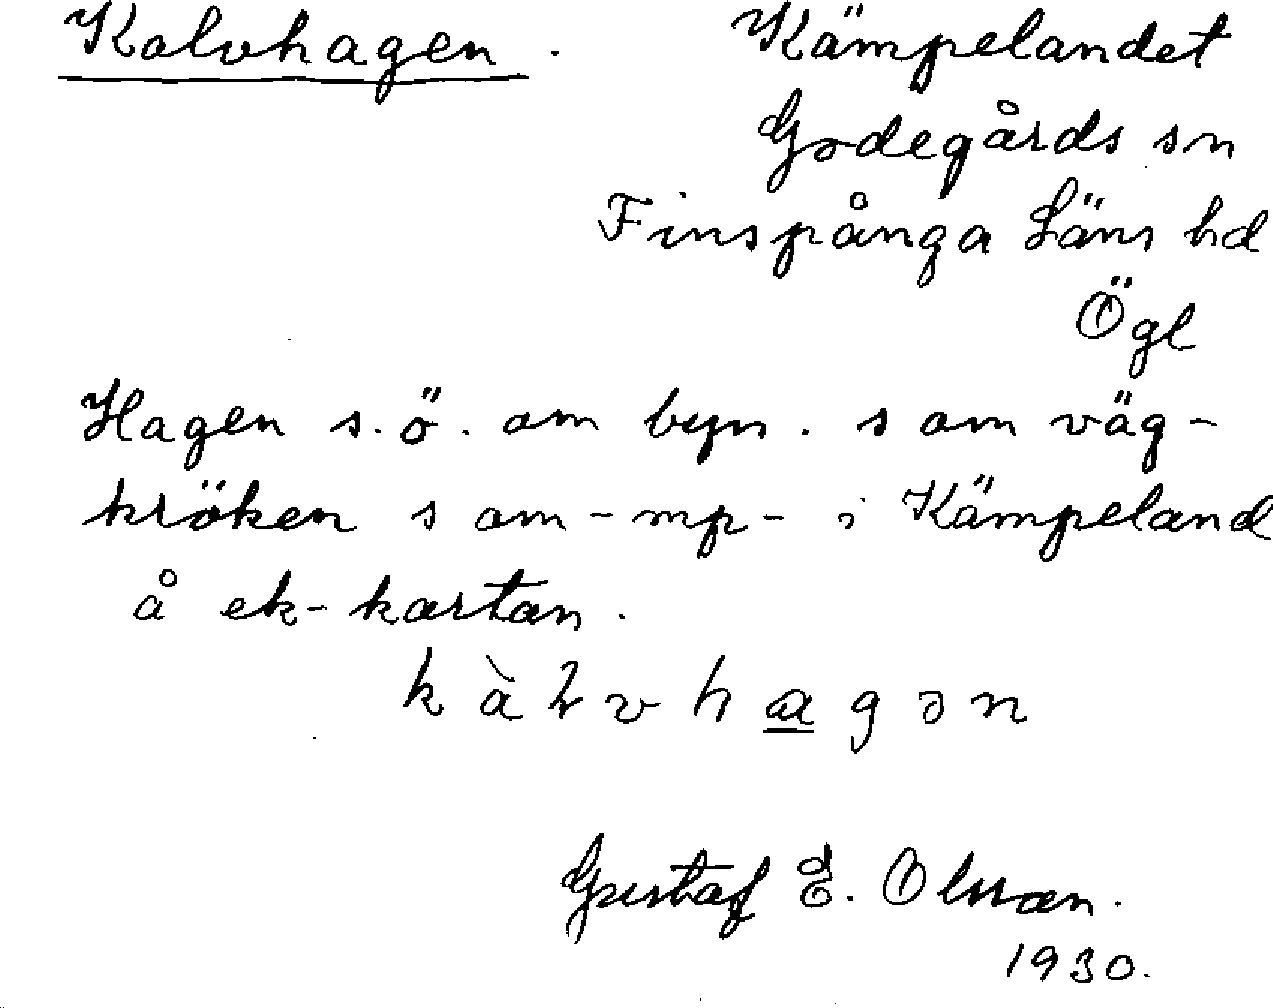 Kalvhagen. Kämpelandet
Godegårds sn
Finspånga Läns hd
Ögl
Hagen s.ö. om byn. s om väg-
kröken s om -mp- i Kämpeland
å ek-kartan.
kàɫvhagən
Gustaf E. Olsson.
1930.